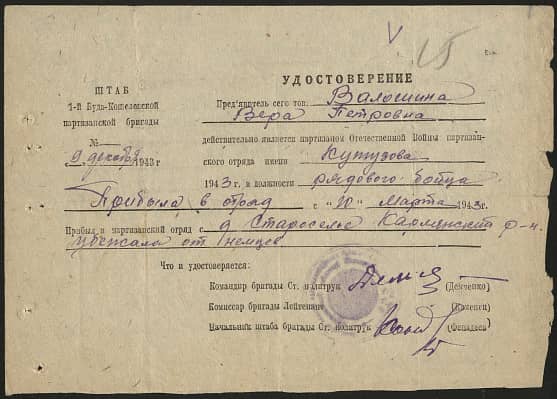 V
УДОСТОВЕРЕНИЕ
ШТАБ
1-й Буда-Кошелевской
партизанской бригады
№
9 декабря 1943 г
Пред'явитель сего тов. Валошина
Вера Петровна
действительно является партизаном Отечественной Войны партизан-
ского отряда имени Кутузова
1943 г. в должности рядового бойца
Прибыла в отряд с "10" марта 1943 г.
Прибыл в партизанский отряд с д Староселье Кармянский р-н.
убежала от немцев
Что и удостоверяется:
Командир бригады Ст. политрук (Демченко)
Комиссар бригады Лейтенант
Начальник штаба бригады Ст. политрук